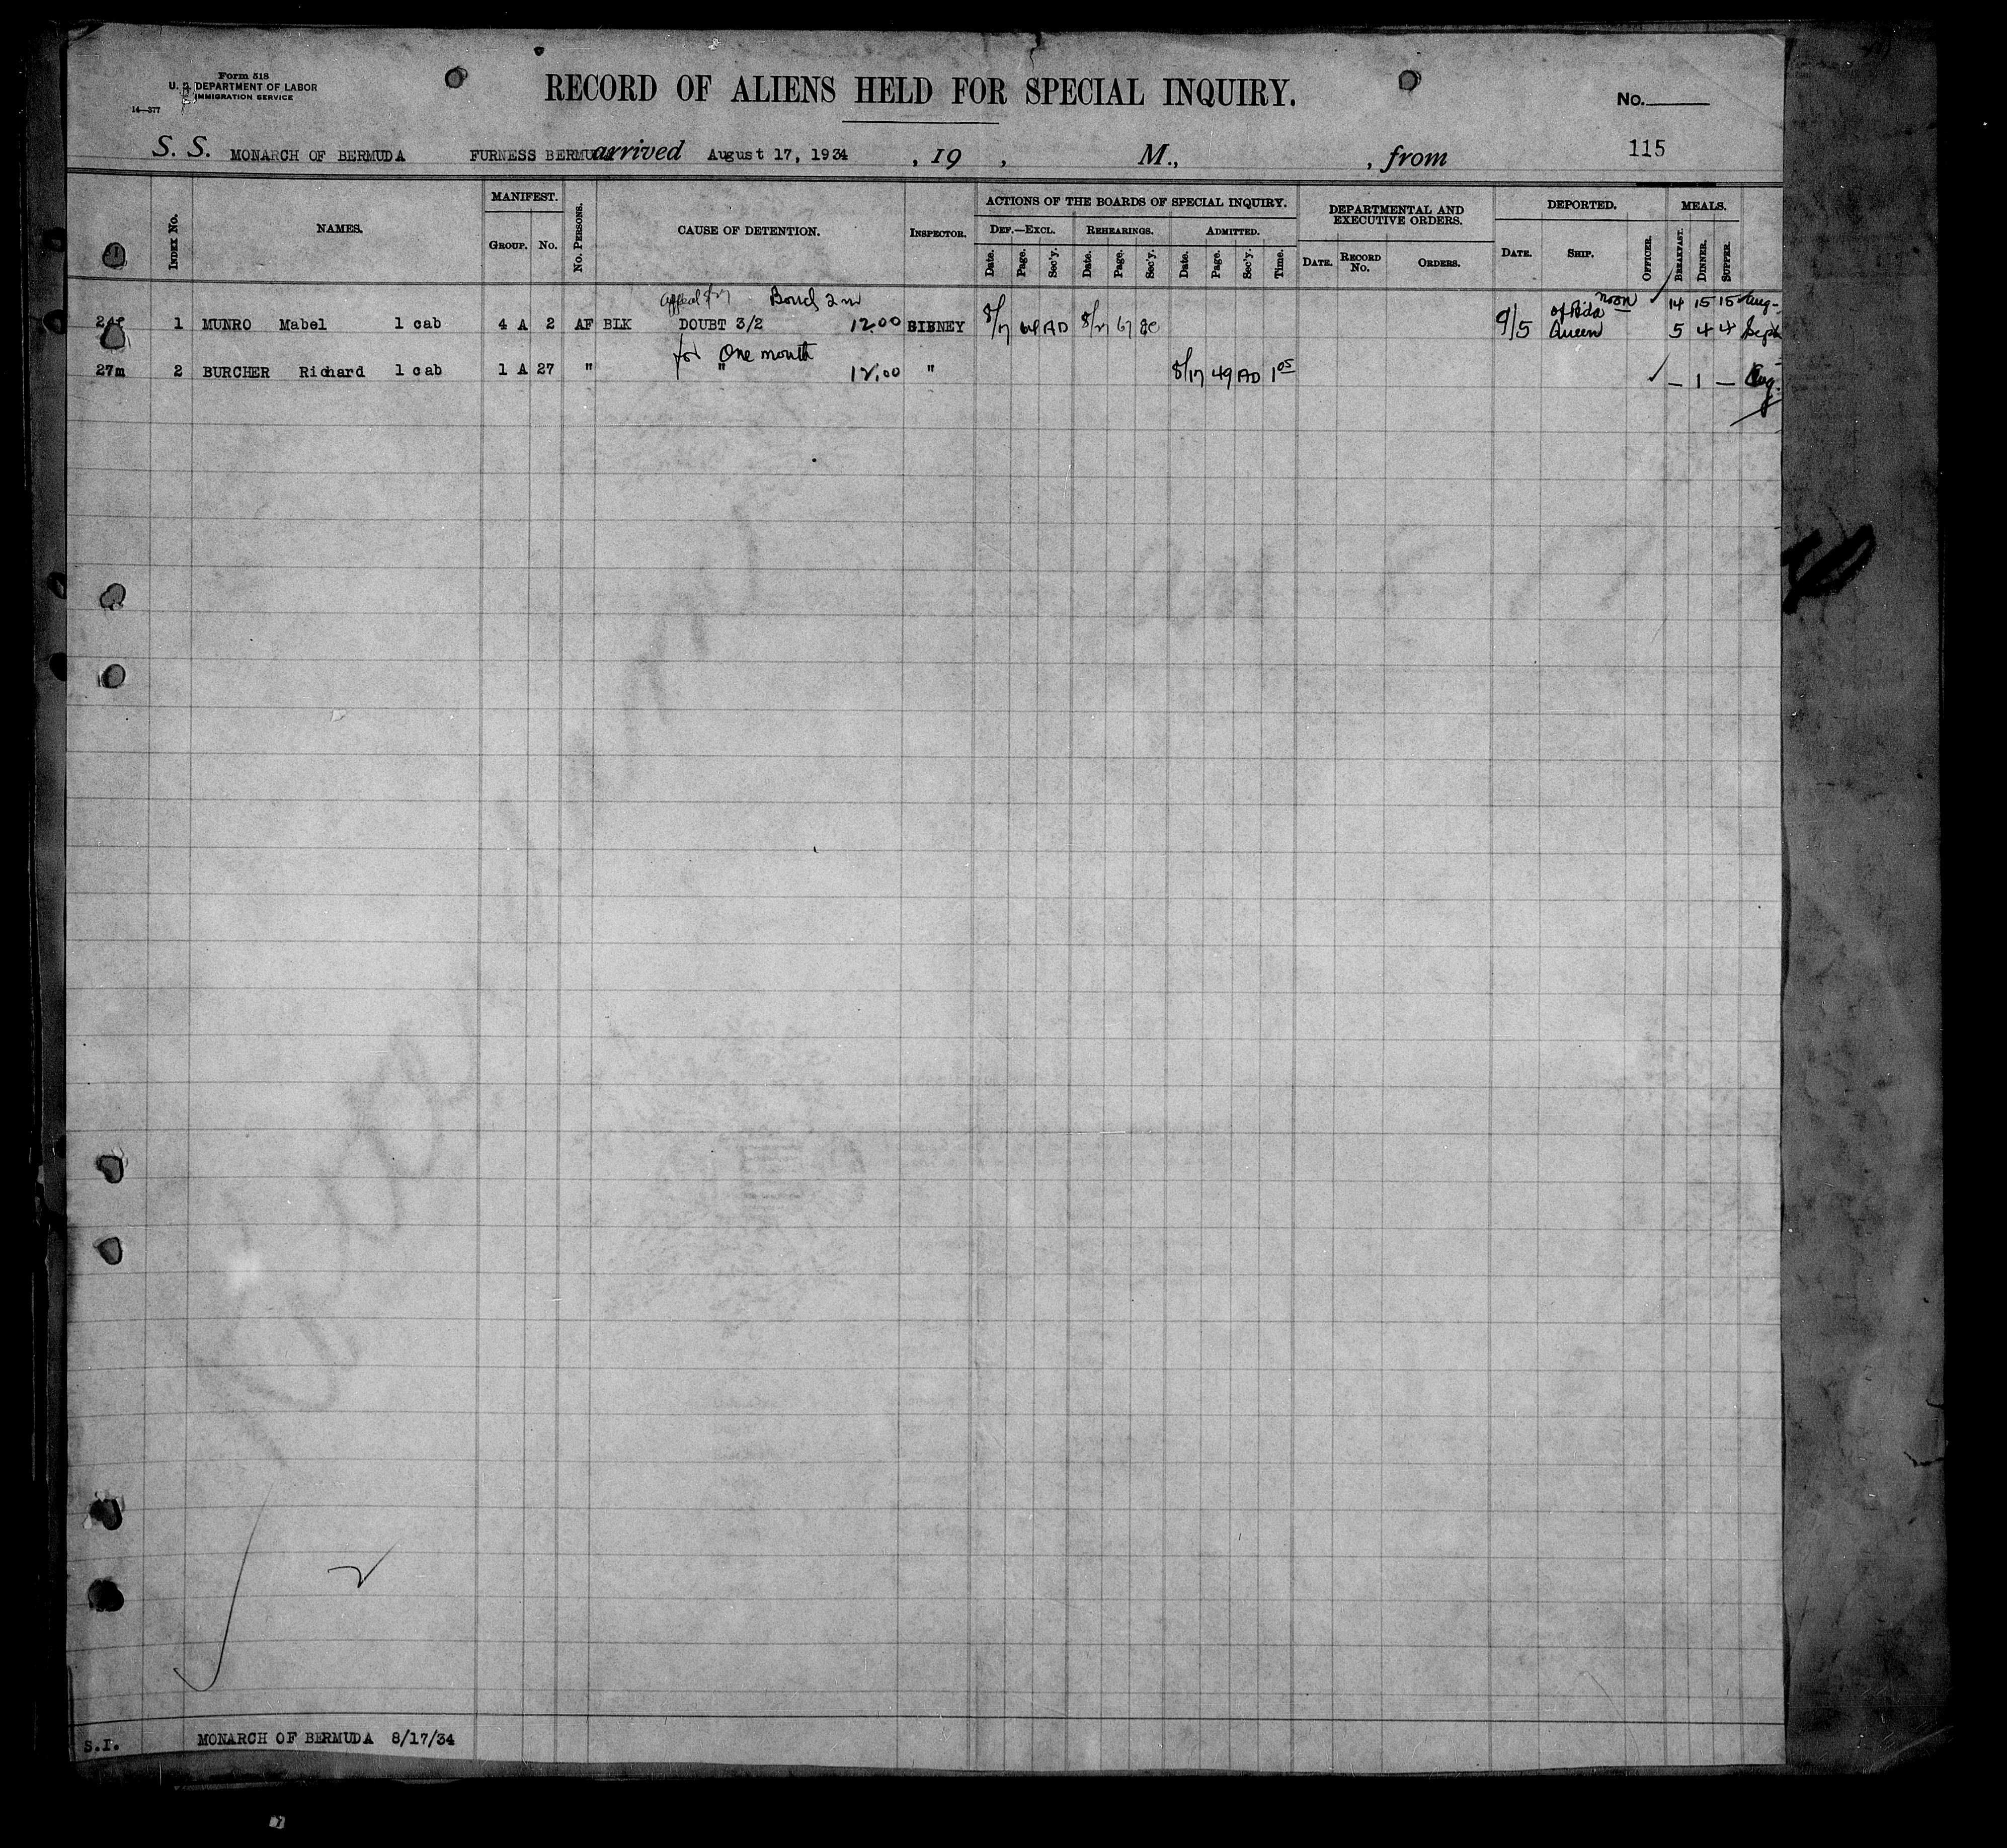 Form 518
U. S. DEPARTMENT OF LABOR
IMMIGRATION SERVICE
14—377
RECORD OF ALIENS HELD FOR SPECIAL INQUIRY.
No.
S. S. MONARCH OF BERMUDA FURNESS BERMUDA arrived August 17, 1934 , 19 , M., , from 115
INDEX No. NAMES. MANIFEST. GROUP. No. No. PERSONS. CAUSE OF DETENTION. INSPECTOR. ACTIONS OF THE BOARDS OF SPECIAL INQUIRY. DEF.—EXCL. Date. Page. Sec'y. REHEARINGS. Date. Page. Sec'y. ADMITTED. Date. Page. Sec'y. Time. DEPARTMENTAL AND EXECUTIVE ORDERS. DATE. RECORD No. ORDERS. DEPORTED. DATE. SHIP. OFFICER. MEALS. BREAKFAST. DINNER. SUPPER.
Appeal Bond 2 m noon 14 15 15 Aug-
1 MUNRO Mabel 1 cab 4 A 2 AF BLK DOUBT 3/2 12.00 SIBNEY 8/17 AD 8/27 67 9/5 of Bda Queen 5 4 4 Sept
for One month
27m 2 BURCHER Richard 1 cab 1 A 27 " " 12.00 " 8/17 49 AD 1 05 — 1 — Aug.
S.I. MONARCH OF BERMUDA 8/17/34